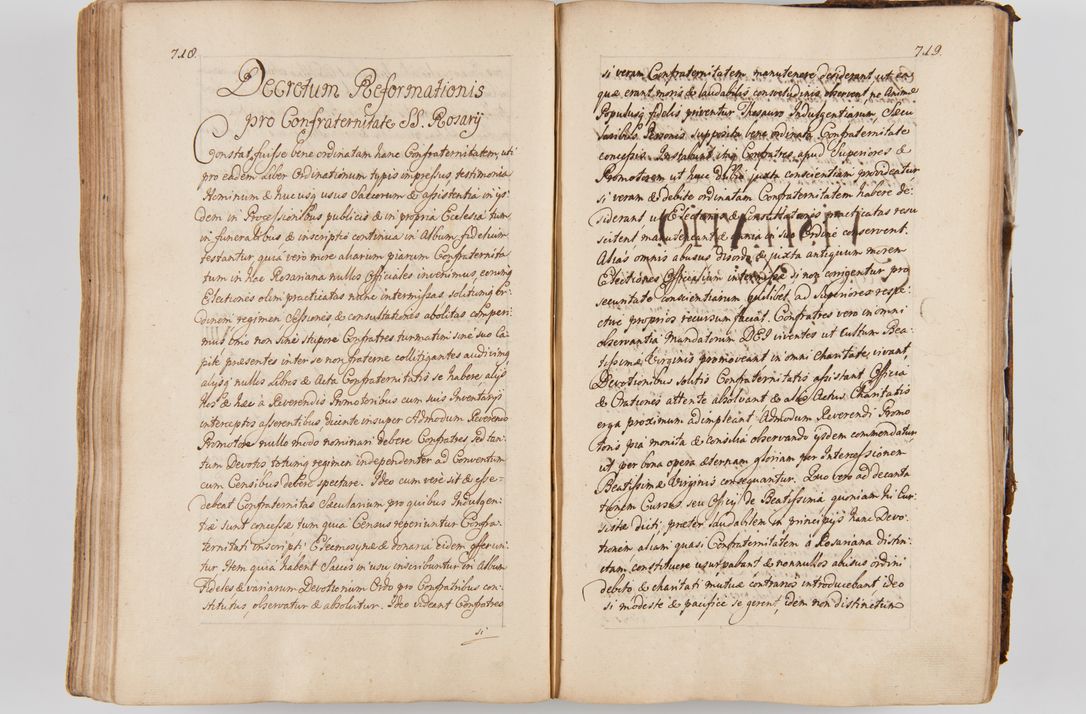 718.
Decretum Reformationis
pro Confraternitate SS. Rosarij
Constat fuisse bene ordinatam hanc Confraternitatem, uti
pro eadem Liber Ordinationum typis impressus testimonia
Hominum & hucusq usus Saccorum & assistentia in ijs
dem in Processionibus publicis & in propria Ecclesia tum
in funeralibus & inscriptio continua in Album fidelium
testantur, quia vero more aliarum piarum Confraternita
tum in hac Rosariana nullos Officiales invenimus, eorumq
Electiones olim practicatas nunc intermissas solitumq Or-
dinem regimen Sessiones & consultationes abolitas comperi-
mus imo non sine stupore Confratres turmatim sine suo Ca-
pite præsentes inter se non fraterne collitigantes audivimus,
alijsq nullos Libros & Acta Confraternitatis se habere, alijs
hos & hæc à Reverendis Promotoribus cum suis Inventarijs
interceptos asserentibus, dicente insuper Admodum Reverendo
Promotore nullo modo nominari debere Confratres sed tan-
tum Devotos totumq regimen independenter ad Conventum
cum Censibus debere spectare. Ideo cum vere sit & esse
debeat Confraternitas Sæcularium pro quibus Indulgen-
tiæ sunt concessæ tum quia Census reperiuntur Confra-
ternitati inscripti Eleemosynæ & donaria eidem offerun-
tur Item quia habent Saccos in usu inscribuntur in Album
Fideles & variarum Devotionum Ordo pro Confratribus con-
stitutus, observatur & absolvitur. Ideo videant Confratres
si
719.
si veram Confraternitatem manutenere desiderant, ut ea
quæ erant moris & laudabilis consvetudinis observent, ne Animæ
Populusq fidelis priventur Thesauro Indulgentiarum, Sæcu
laribus Personis supposita bene ordinata Confraternitate
concessis. Instabunt itaq Confratres apud Superiores &
Promotorem ut huic debite juxta conscientiam provideatur
si veram & debite ordinatam Confraternitatem habere de-
siderant ut Electiones & Consultationes practicatas resu
scitent manuteneant & omnia in suo Ordine conservent.
Alias omnis abusus disordo & juxta antiquum morem
Electiones Officialium intermissæ di non corrigentur pro
securitate conscientiarum quilibet ad Superiores respe-
ctive proprios recursum faciat. Confratres vero in omni
observantia Mandatorum DEI viventes ut Cultum Bea-
tissimæ Virginis promoveant in omni charitate, vivant,
Devotionibus solitis Confraternitatis assistant Officia
& Orationes attente absolvant & alios Actus Charitatis
erga proximum adimpleant Admodum Reverendi Promo
toris pia monita & consilia observando ijsdem commendatur
ut per bona opera æternam gloriam per Intercessionem
Beatissimæ Virginis consequantur. Quo vero ad decanta
tionem Cursus seu Officij de Beatissima quoniam hi Cur-
sistæ dicti præter laudabilem in principijs hanc Devo-
tionem aliam quasi Confraternitatem à Rosariana distin-
ctam constituere usurpabant & nonnullos abusus ordini
debito & charitati mutuæ contrarios introducebant ideo
si modeste & pacifice se gerent, idem non distinctum